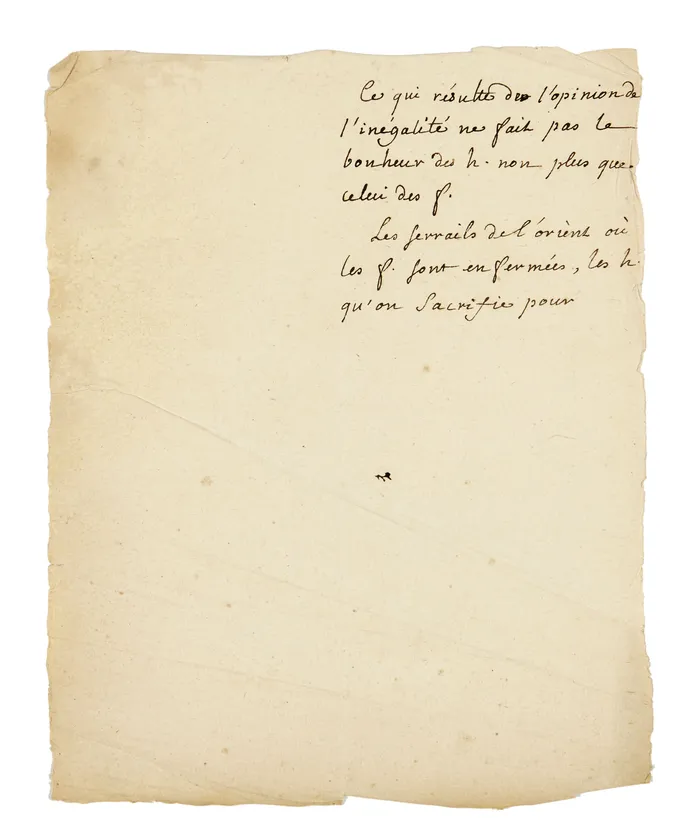 Ce qui résulte de l'opinion de
l'inégalité ne fait pas le
bonheur des h. non plus que
celui des f.
Les serrails de l'orient où
les f. sont enfermées, les h.
qu'on sacrifie pour